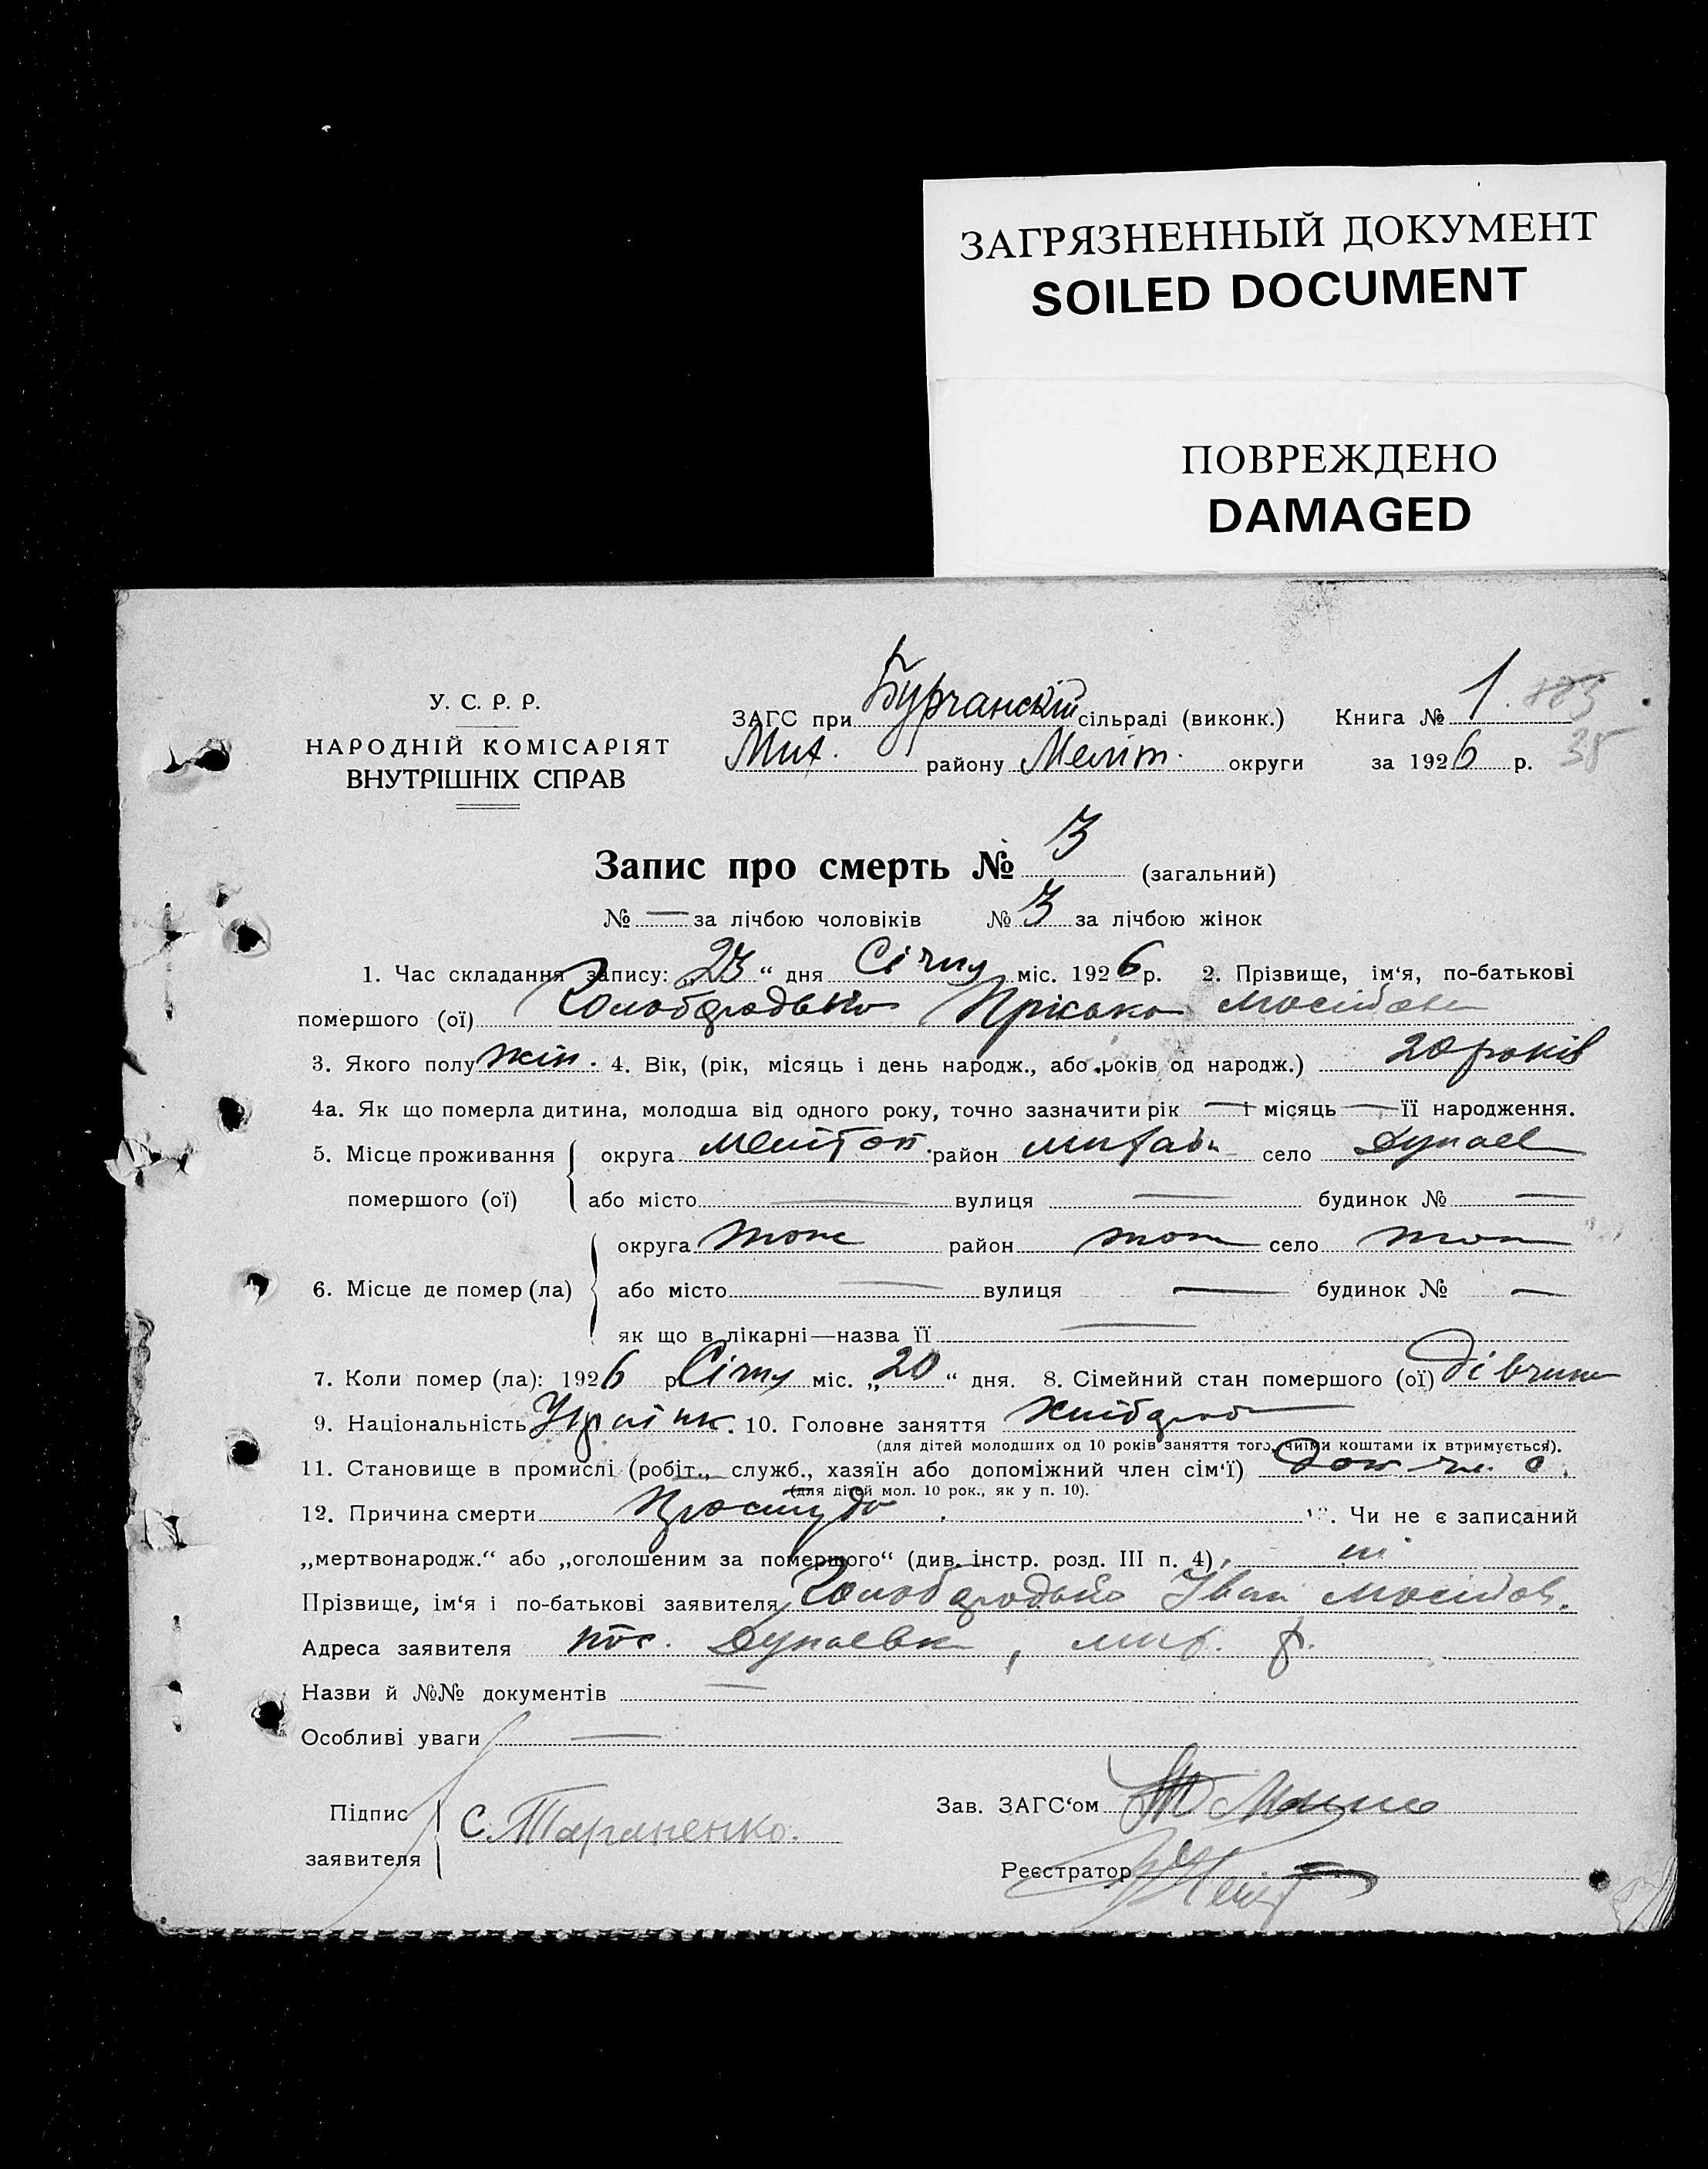 ЗАГРЯЗНЕННЫЙ ДОКУМЕНТ
SOILED DOCUMENT
ПОВРЕЖДЕНО
DAMAGED
У. С. Р. Р.
НАРОДНІЙ КОМІСАРІЯТ
ВНУТРІШНІХ СПРАВ
ЗАГС при Бурчанскій сільраді (виконк.) Книга № 1
Мих. району Меліт. округи за 1926 р. 35
Запис про смерть № 3 (загальний)
№ — за лічбою чоловіків № 3 за лічбою жінок
1. Час складання запису: „23“ дня Січня міс. 1926 р. 2. Прізвище, ім‘я, по-батькові
помершого (ої) Пріська
3. Якого полу жін. 4. Вік, (рік, місяць і день народж., або років од народж.) 20 років
4а. Як що померла дитина, молодша від одного року, точно зазначити рік — і місяць — її народження.
5. Місце проживання округа район село Дунаев
помершого (ої) або місто — вулиця — будинок № —
округа тож район тож село тож
6. Місце де помер (ла) або місто — вулиця — будинок № —
як що в лікарні—назва її —
7. Коли помер (ла): 1926 р. Січня міс. „20“ дня. 8. Сімейний стан помершого (ої) дівчина
9. Національність 10. Головне заняття
(для дітей молодших од 10 років заняття того, чиїми коштами їх втримується).
11. Становище в промислі (робіт., служб., хазяїн або допоміжний член сім‘ї) доп чл. с.
(для дітей мол. 10 рок., як у п. 10).
12. Причина смерти Простуда 13. Чи не є записаний
„мертвонародж.“ або „оголошеним за помершого“ (див. інстр. розд. III п. 4) ні
Прізвище, ім‘я і по-батькові заявителя Іван
Адреса заявителя пос. Дунаевка, мих. р.
Назви й №№ документів —
Особливі уваги —
Підпис
заявителя С. Тараненко.
Зав. ЗАГС‘ом
Реєстратор